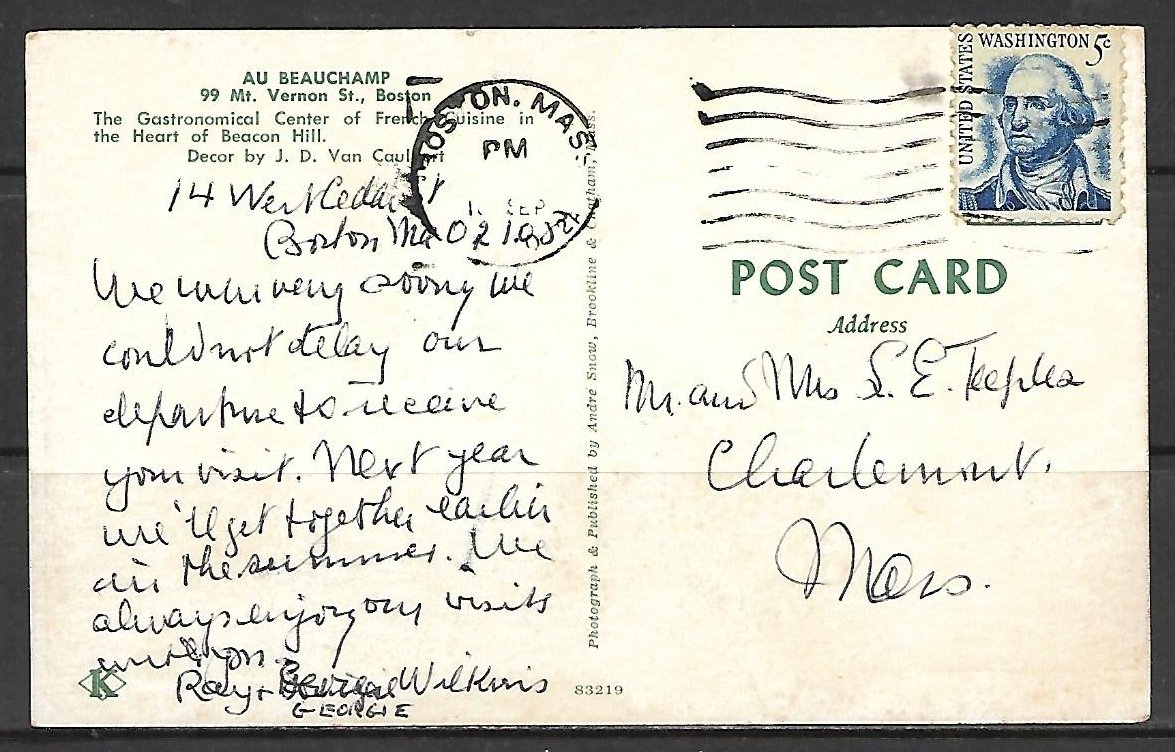 AU BEAUCHAMP
99 Mt. Vernon St., Boston
The Gastronomical Center of French Cuisine in
the Heart of Beacon Hill.
Decor by J. D. Van
14 West Cedar St
Boston Ma 021
We were very sorry we
could not delay our
departure to receive
your visit. Next year
we'll get together earlier
in the summer. We
always enjoy our visits
with you.
Ray + Georgie Wilkins
GEORGIE
K
83219
Photograph & Published by Andre Snow, Brookline & Chatham, Mass.
BOSTON. MASS.
PM
SEP
UNITED STATES
WASHINGTON 5c
POST CARD
Address
Mr. and Mrs E.
Charlemont.
Mass.